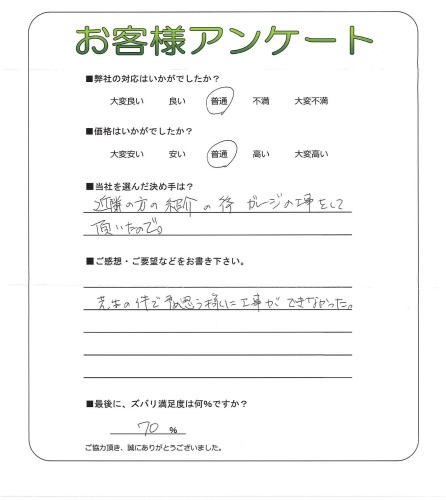 お客様アンケート
■弊社の対応はいかがでしたか?
大変良い 良い 普通 不満 大変不満
■価格はいかがでしたか?
大変安い 安い 普通 高い 大変高い
■当社を選んだ決め手は?
近隣の方の紹介の後 ガレージの工事をして
頂いたので。
■ご感想・ご要望などをお書き下さい。
の件で 思う様に工事ができなかった。
■最後に、ズバリ満足度は何%ですか?
70 %
ご協力頂き、誠にありがとうございました。